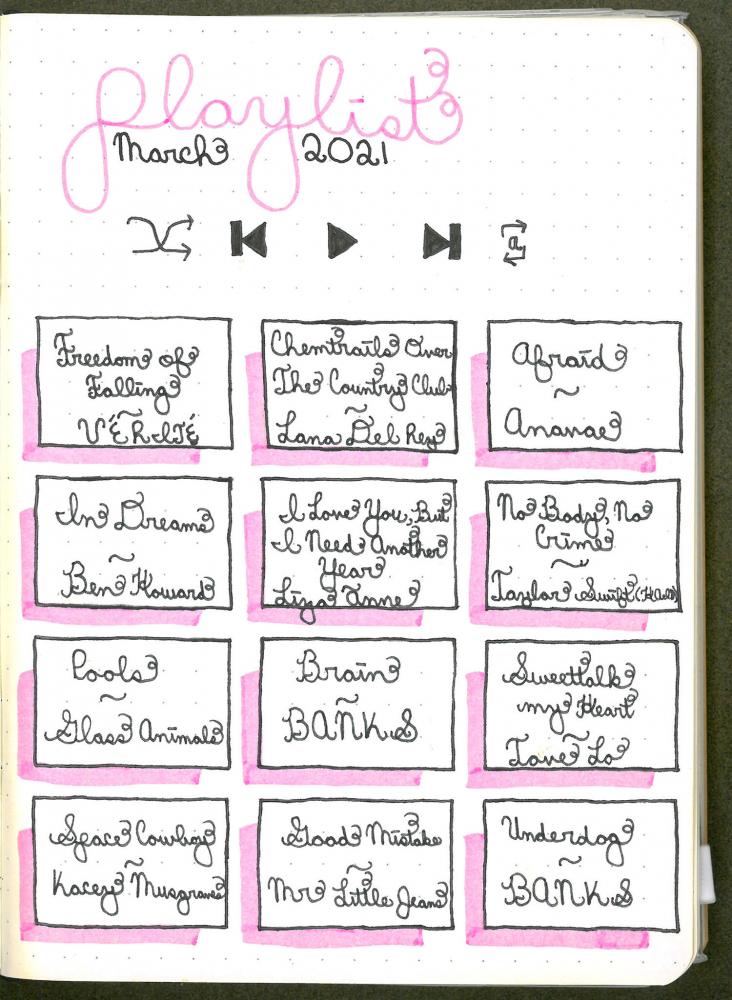 playlist
March 2021
Freedom of
Falling
~
VÉRITÉ
Chemtrails Over
The Country Club
~
Lana Del Rey
Afraid
~
Ananae
In Dreams
~
Ben Howard
I Love You, But
I Need Another
Year
Liza Anne
No Body, No
Crime
~
Taylor Swift (HAIM)
Pools
~
Glass Animals
Brain
~
BANKS
Sweettalk
my Heart
~
Tove Lo
Space Cowboy
~
Kacey Musgraves
Good Mistake
~
Mr Little Jeans
Underdog
~
BANKS